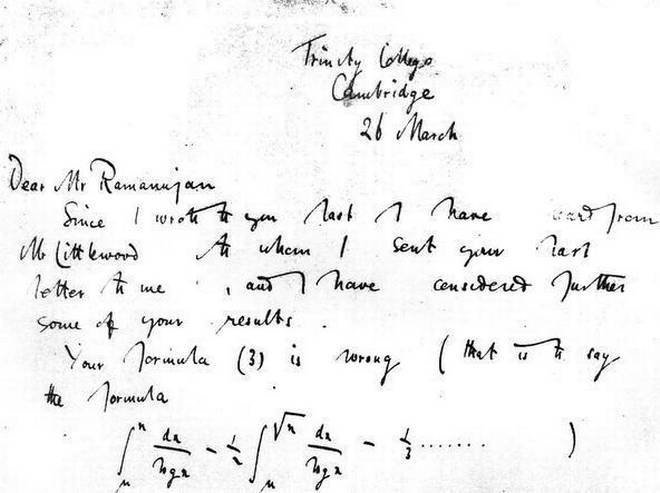 Trinity College
Cambridge
26 March
Dear Mr Ramanujan
Since I wrote to you last I have heard from
Mr Littlewood to whom I sent your last
letter to me , and I have considered further
some of your results .
Your formula (3) is wrong ( that is to say
the formula
∫_μ^n dx/log x - 1/2 ∫_μ^√n dx/log x - 1/3 ....... )